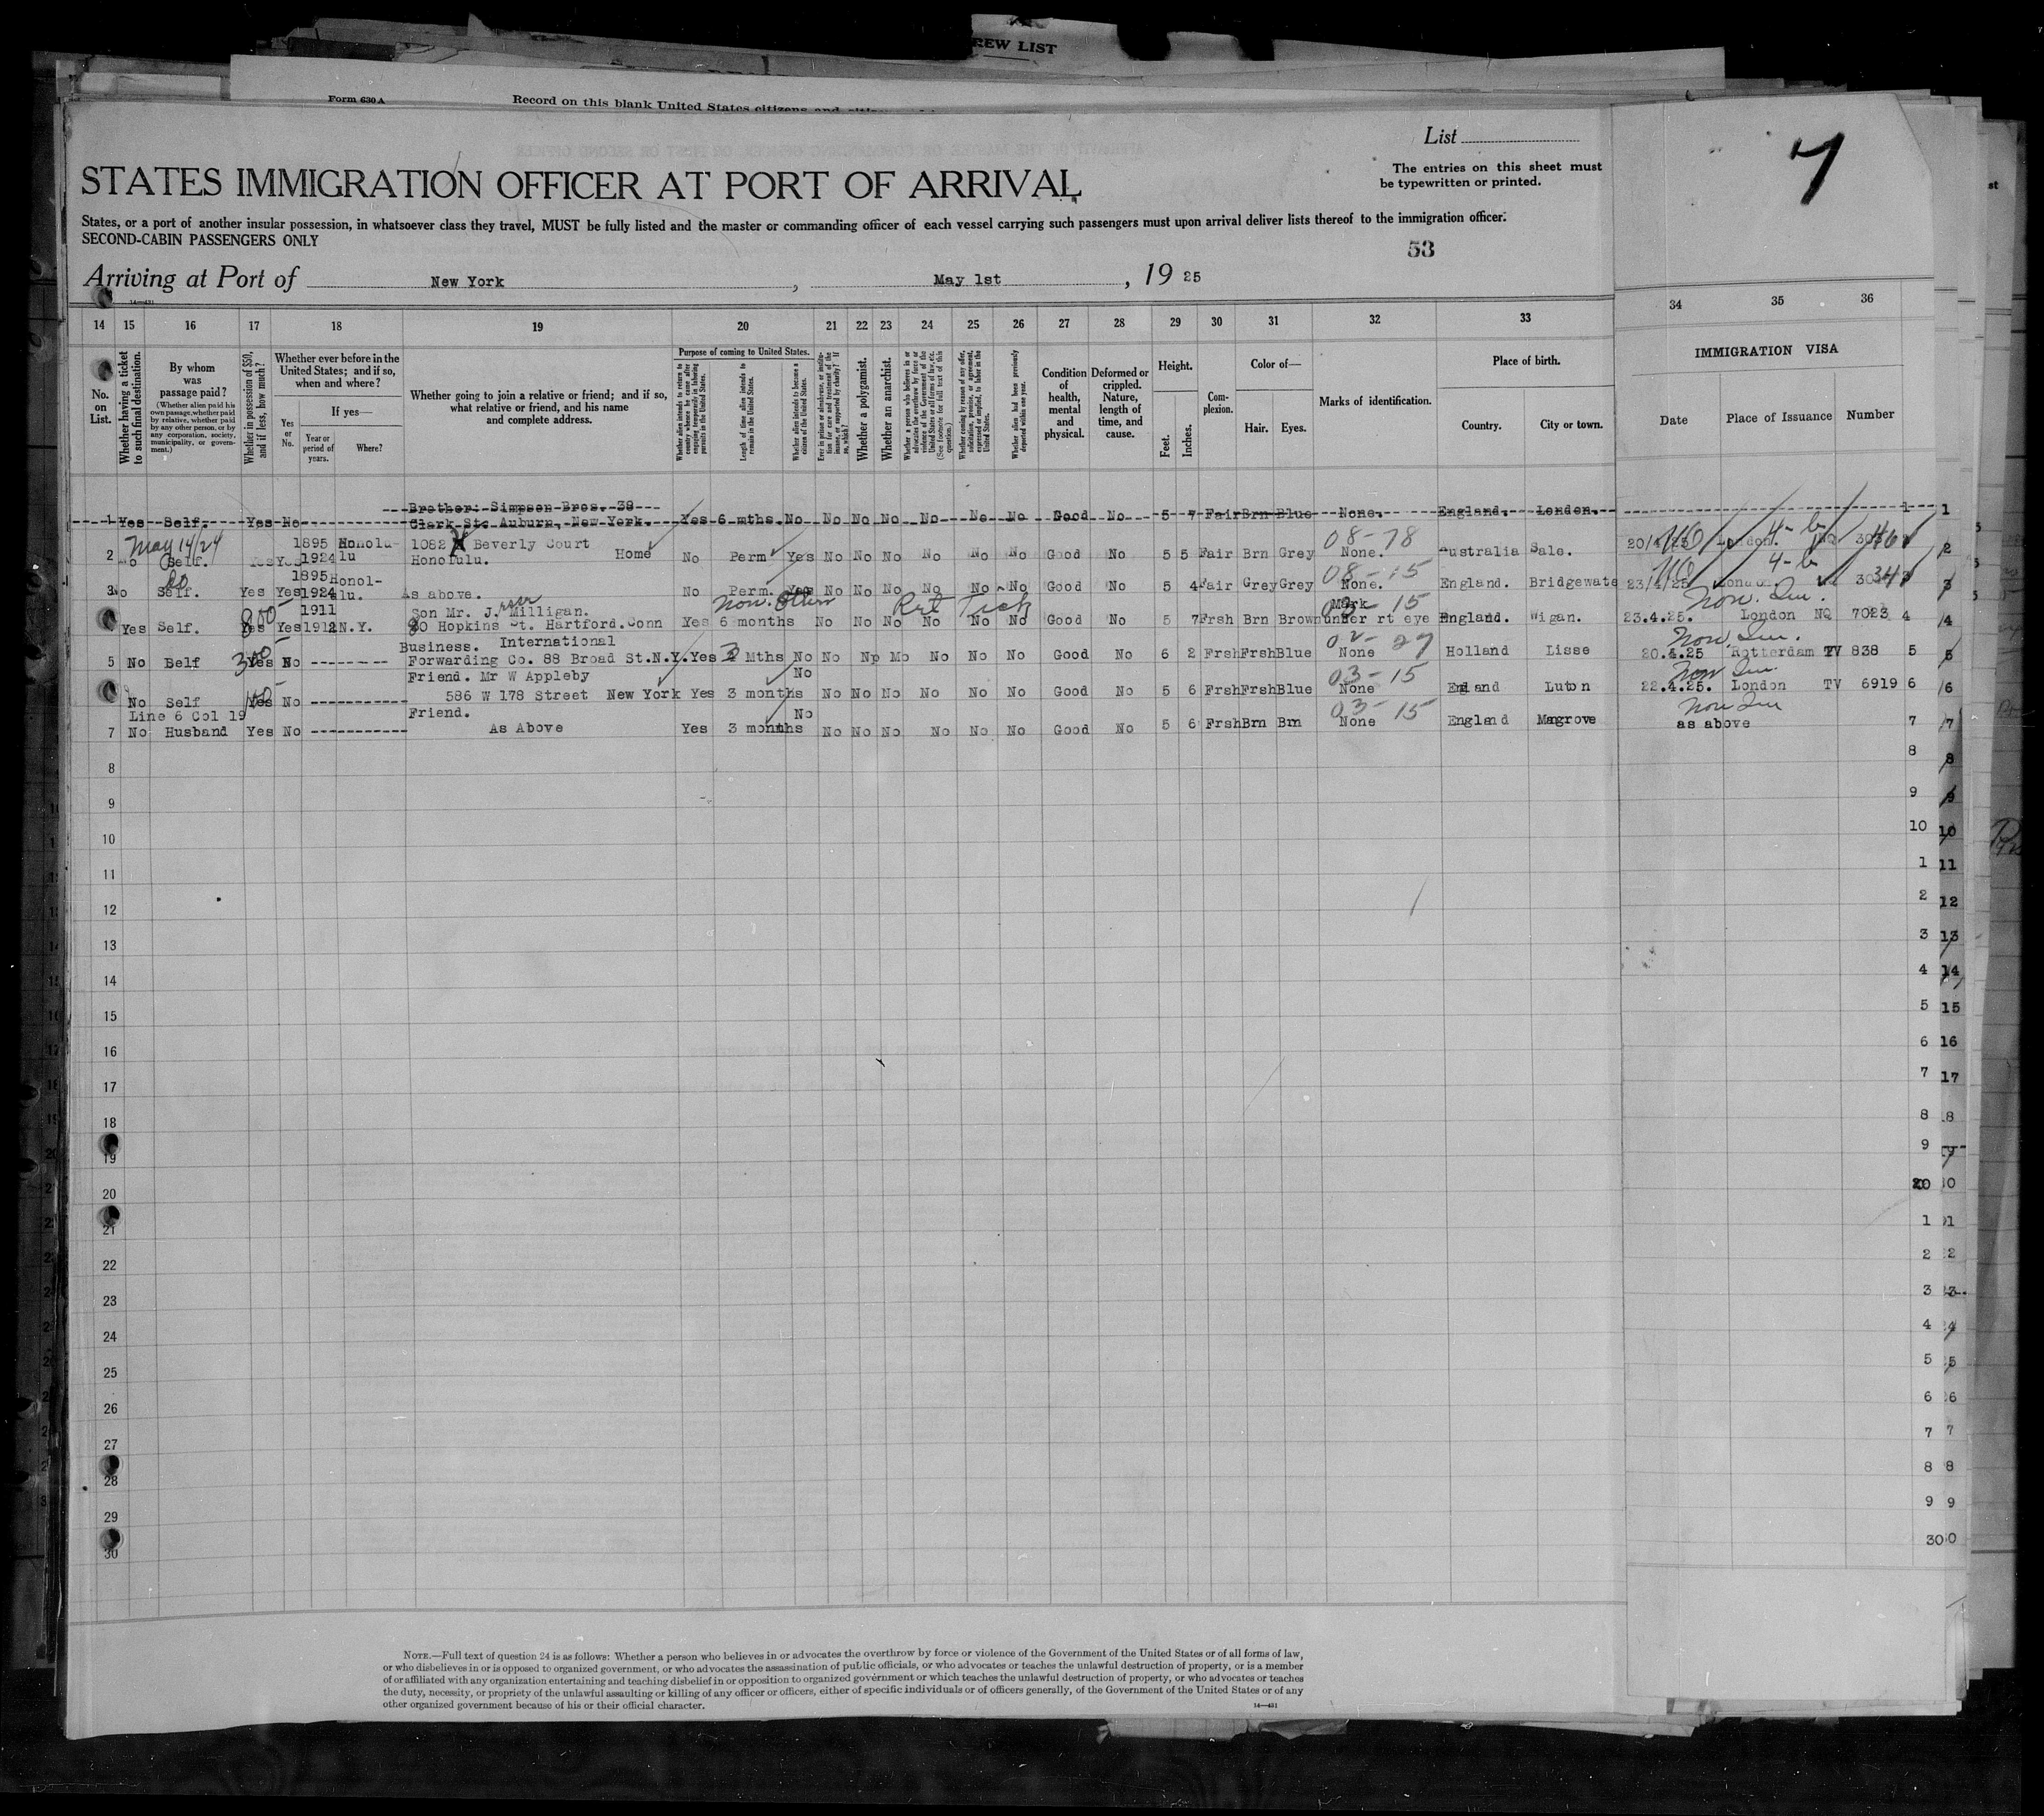 REW LIST
Form 630 A
Record on this blank United States citizens and
List
The entries on this sheet must
be typewritten or printed.
7
STATES IMMIGRATION OFFICER AT PORT OF ARRIVAL
States, or a port of another insular possession, in whatsoever class they travel, MUST be fully listed and the master or commanding officer of each vessel carrying such passengers must upon arrival deliver lists thereof to the immigration officer.
SECOND-CABIN PASSENGERS ONLY
53
Arriving at Port of New York, May 1st, 1925
14 15 16 17 18 19 20 21 22 23 24 25 26 27 28 29 30 31 32 33 34 35 36
No. on List.
Whether having a ticket to such final destination.
By whom was passage paid?
(Whether alien paid his own passage, whether paid by relative, whether paid by any other person, or by any corporation, society, municipality, or government.)
Whether in possession of $50, and if less, how much?
Whether ever before in the United States; and if so, when and where?
Yes or No.
If yes—
Year or period of years.
Where?
Whether going to join a relative or friend; and if so, what relative or friend, and his name and complete address.
Purpose of coming to United States.
Whether alien intends to return to country whence he came after engaging temporarily in laboring pursuits in the United States.
Length of time alien intends to remain in the United States.
Whether alien intends to become a citizen of the United States.
Ever in prison or almshouse, or institution for care and treatment of the insane, or supported by charity? If so, which?
Whether a polygamist.
Whether an anarchist.
Whether a person who believes in or advocates the overthrow by force or violence of the Government of the United States or all forms of law, etc. (See footnote for full text of this question.)
Whether coming by reason of any offer, solicitation, promise, or agreement, expressed or implied, to labor in the United States.
Whether alien had been previously deported within one year.
Condition of health, mental and physical.
Deformed or crippled. Nature, length of time, and cause.
Height.
Feet. Inches.
Complexion.
Color of—
Hair. Eyes.
Marks of identification.
Place of birth.
Country. City or town.
IMMIGRATION VISA
Date Place of Issuance Number
Brother: Simpson Bros. 39
1 Yes Self. Yes No Clark St. Auburn, New York. Yes 6 mths. No No No No No No No Good No 5 7 Fair Brn Blue None. England. London. 1
May 14/24 1895 Honolu- 1082 Beverly Court 08-78 4-b
2 No Self. Yes Yes 1924 lu Honolulu. Home No Perm Yes No No No No No No Good No 5 5 Fair Brn Grey None. Australia Sale. 20/4/25 London. NQ 2
do 1895 Honol- 08-15 4-b
3 No Self. Yes Yes 1924 lu. As above. No Perm. Yes No No No No No No Good No 5 4 Fair Grey Grey None. England. Bridgewate 23/4/25 London 3
800 1911 Son Mr. J. Milligan. Non. Ret Tick Mark 03-15 Non. Im.
Yes Self. Yes Yes 1912 N.Y. 80 Hopkins St. Hartford.Conn Yes 6 months No No No No No No Good No 5 7 Frsh Brn Brown under rt eye England. Wigan. 23.4.25. London NQ 7023 4
300 Business. International 02-27 Non. Im.
5 No Self Yes N Forwarding Co. 88 Broad St.N.Y. Yes 2 Mths No No Np Mo No No No Good No 6 2 Frsh Frsh Blue None Holland Lisse 20.4.25 Rotterdam TV 838 5
Friend. Mr W Appleby No 03-15 Non Im.
No Self Yes No 586 W 178 Street New York Yes 3 months No No No No No No Good No 5 6 Frsh Frsh Blue None England Luton 22.4.25. London TV 6919 6
Line 6 Col 19 Friend. No 03-15 Non Im
7 No Husband Yes No As Above Yes 3 months No No No No No No Good No 5 6 Frsh Brn Brn None England Magrove as above 7
8 8
9 9
10 10
11 1 11
12 2 12
13 3 13
14 4 14
15 5 15
16 6 16
17 7 17
18 8
19 9
20 20
21 1
22 2
23 3
24 4
25 5
26 6
27 7
28 8
29 9
30 30
NOTE.—Full text of question 24 is as follows: Whether a person who believes in or advocates the overthrow by force or violence of the Government of the United States or of all forms of law,
or who disbelieves in or is opposed to organized government, or who advocates the assassination of public officials, or who advocates or teaches the unlawful destruction of property, or is a member
of or affiliated with any organization entertaining and teaching disbelief in or opposition to organized government or which teaches the unlawful destruction of property, or who advocates or teaches
the duty, necessity, or propriety of the unlawful assaulting or killing of any officer or officers, either of specific individuals or of officers generally, of the Government of the United States or of any
other organized government because of his or their official character.
14—431